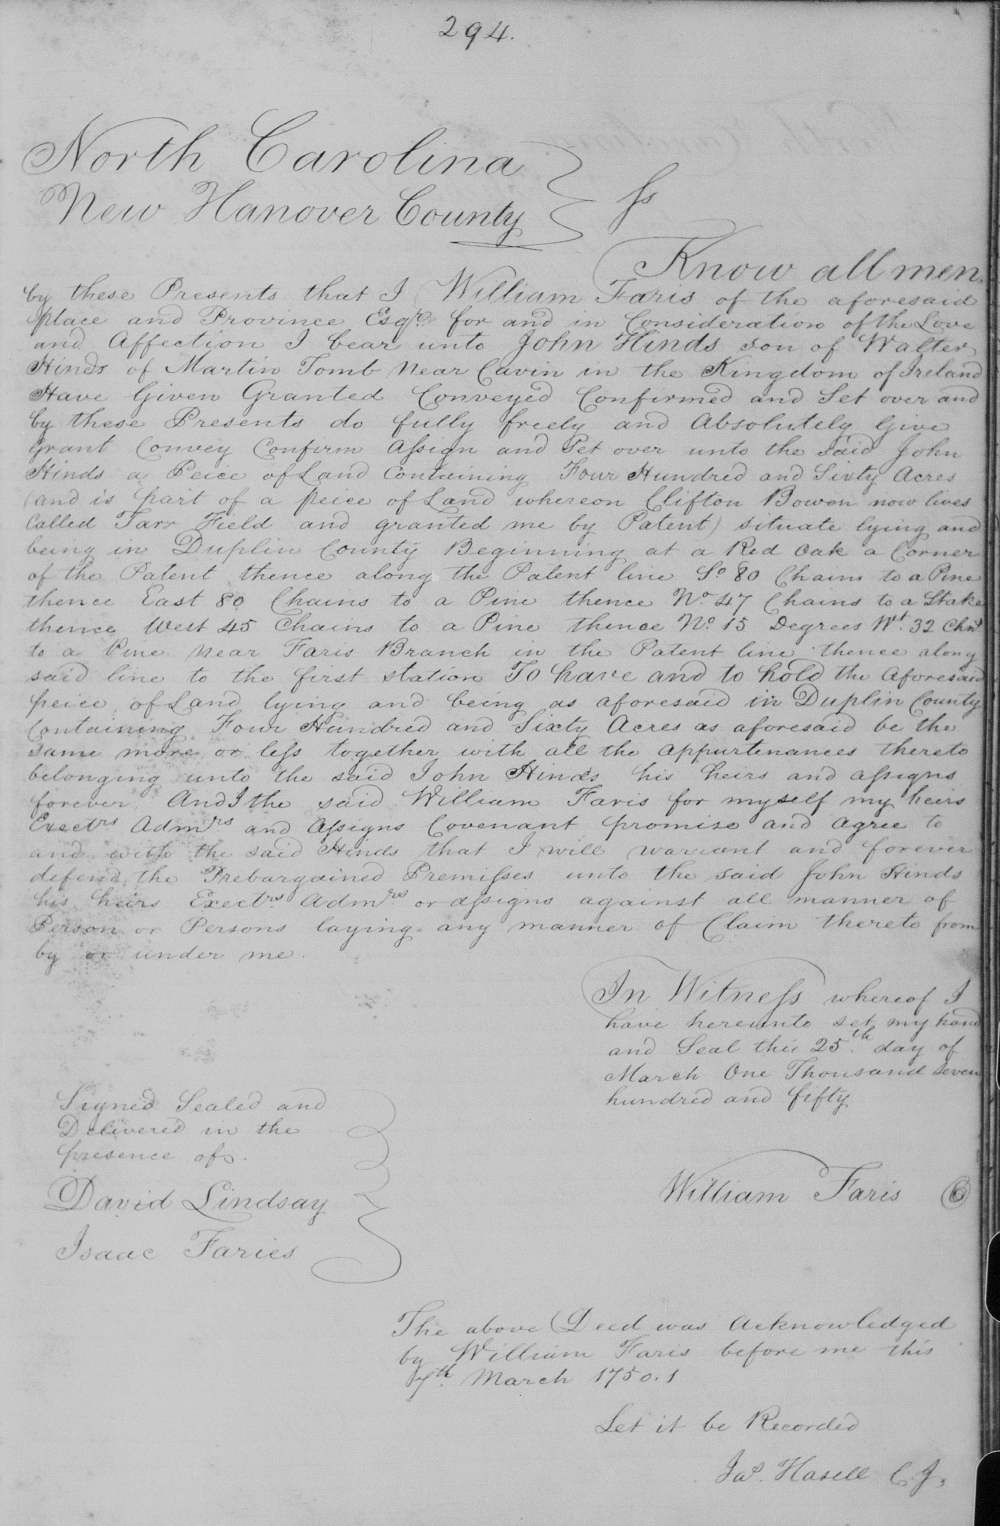 294.
North Carolina
New Hanover County } ss
Know all men
by these Presents that I William Faris of the aforesaid
place and Province Esqr. for and in Consideration of the Love
and Affection I bear unto John Hinds son of Walter
Hinds of Martin Tomb Near Cavin in the Kingdom of Ireland
Have Given Granted Conveyed Confirmed and Set over and
by these Presents do fully freely and Absolutely Give
grant Convey Confirm Assign and Set over unto the said John
Hinds a Peice of Land Containing Four Hundred and Sixty Acres
(and is part of a peice of Land whereon Clifton Bowen now lives
Called Tarr Field and granted me by Patent) situate lying and
being in Duplin County Beginning at a Red Oak a Corner
of the Patent thence along the Patent line So. 80 Chains to a Pine
thence East 80 Chains to a Pine thence No. 47 Chains to a Stake
thence West 45 Chains to a Pine thence No. 15 Degrees Wt. 32 Chns
to a Pine near Faris Branch in the Patent line thence along
said line to the first station To have and to hold the Aforesaid
peice of Land lying and being as aforesaid in Duplin County
Containing Four Hundred and Sixty Acres as aforesaid be the
same more or less together with all the Appurtenances thereto
belonging unto the said John Hinds his heirs and assigns
forever And I the said William Faris for myself my heirs
Exectrs Admrs and Assigns Covenant promise and agree to
and with the said Hinds that I will warrant and forever
defend the Prebargained Premisses unto the said John Hinds
his heirs Exectrs Admrs or assigns against all manner of
Person or Persons laying any manner of Claim thereto from
by or under me.
In Witness whereof I
have hereunto set my hand
and Seal this 25th. day of
March One Thousand seven
hundred and fifty
Signed Sealed and
Delivered in the
presence of.
David Lindsay
Isaac Faries
William Faris
The above Deed was Acknowledged
by William Faris before me this
7th. March 1750.1
Let it be Recorded
Jas. Hasell C. J.